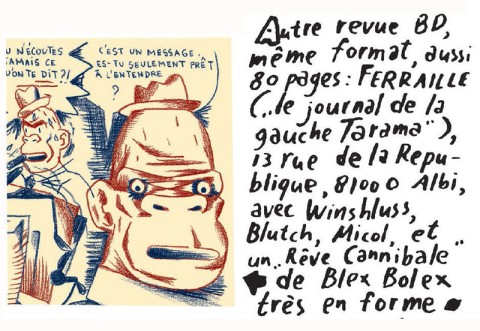 U N'ÉCOUTES
JAMAIS CE
QU'ON TE DIT?!
C'EST UN MESSAGE.
ES-TU SEULEMENT PRÊT
À L'ENTENDRE
?
Autre revue BD,
même format, aussi
80 pages : FERRAILLE
("le journal de la
gauche Tarama"),
13 rue de la Repu-
blique, 81000 Albi,
avec Winshluss,
Blutch, Micol, et
un "Rêve Cannibale"
de Blex Bolex
très en forme